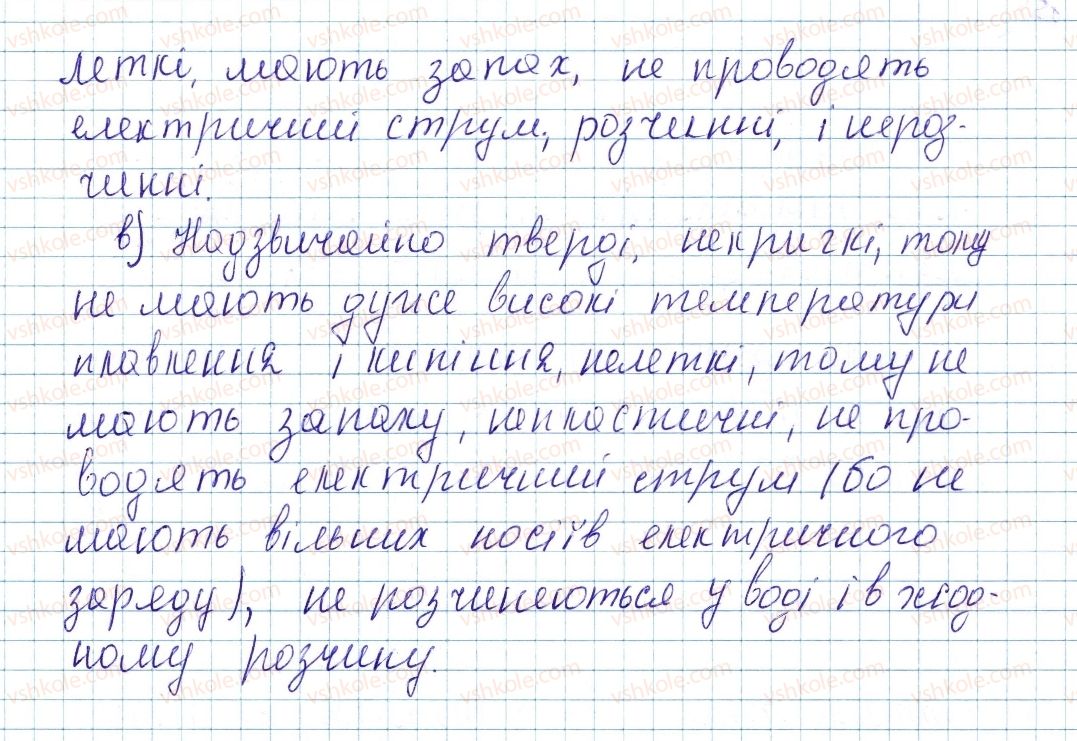 леткі, мають запах, не проводять
електричний струм, розчинні, і нероз-
чинні.
в) Надзвичайно тверді, некрихкі, тому
не мають дуже високі температури
плавлення і кипіння, нелеткі, тому не
мають запаху, непластичні, не про-
водять електричний струм (бо не
мають вільних носіїв електричного
заряду), не розчиняються у воді і в жод-
ному розчину.